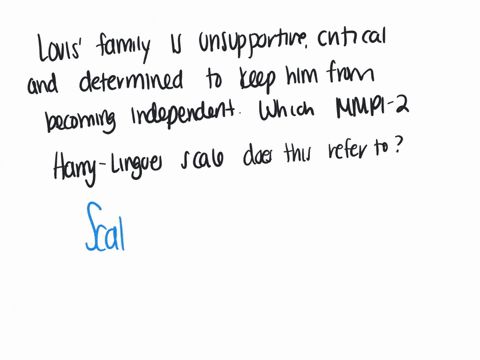 Louis' family is unsupportive, critical
and determined to keep him from
becoming independent. Which MMPI-2
Harry-Lingues scale does this refer to?
Scal